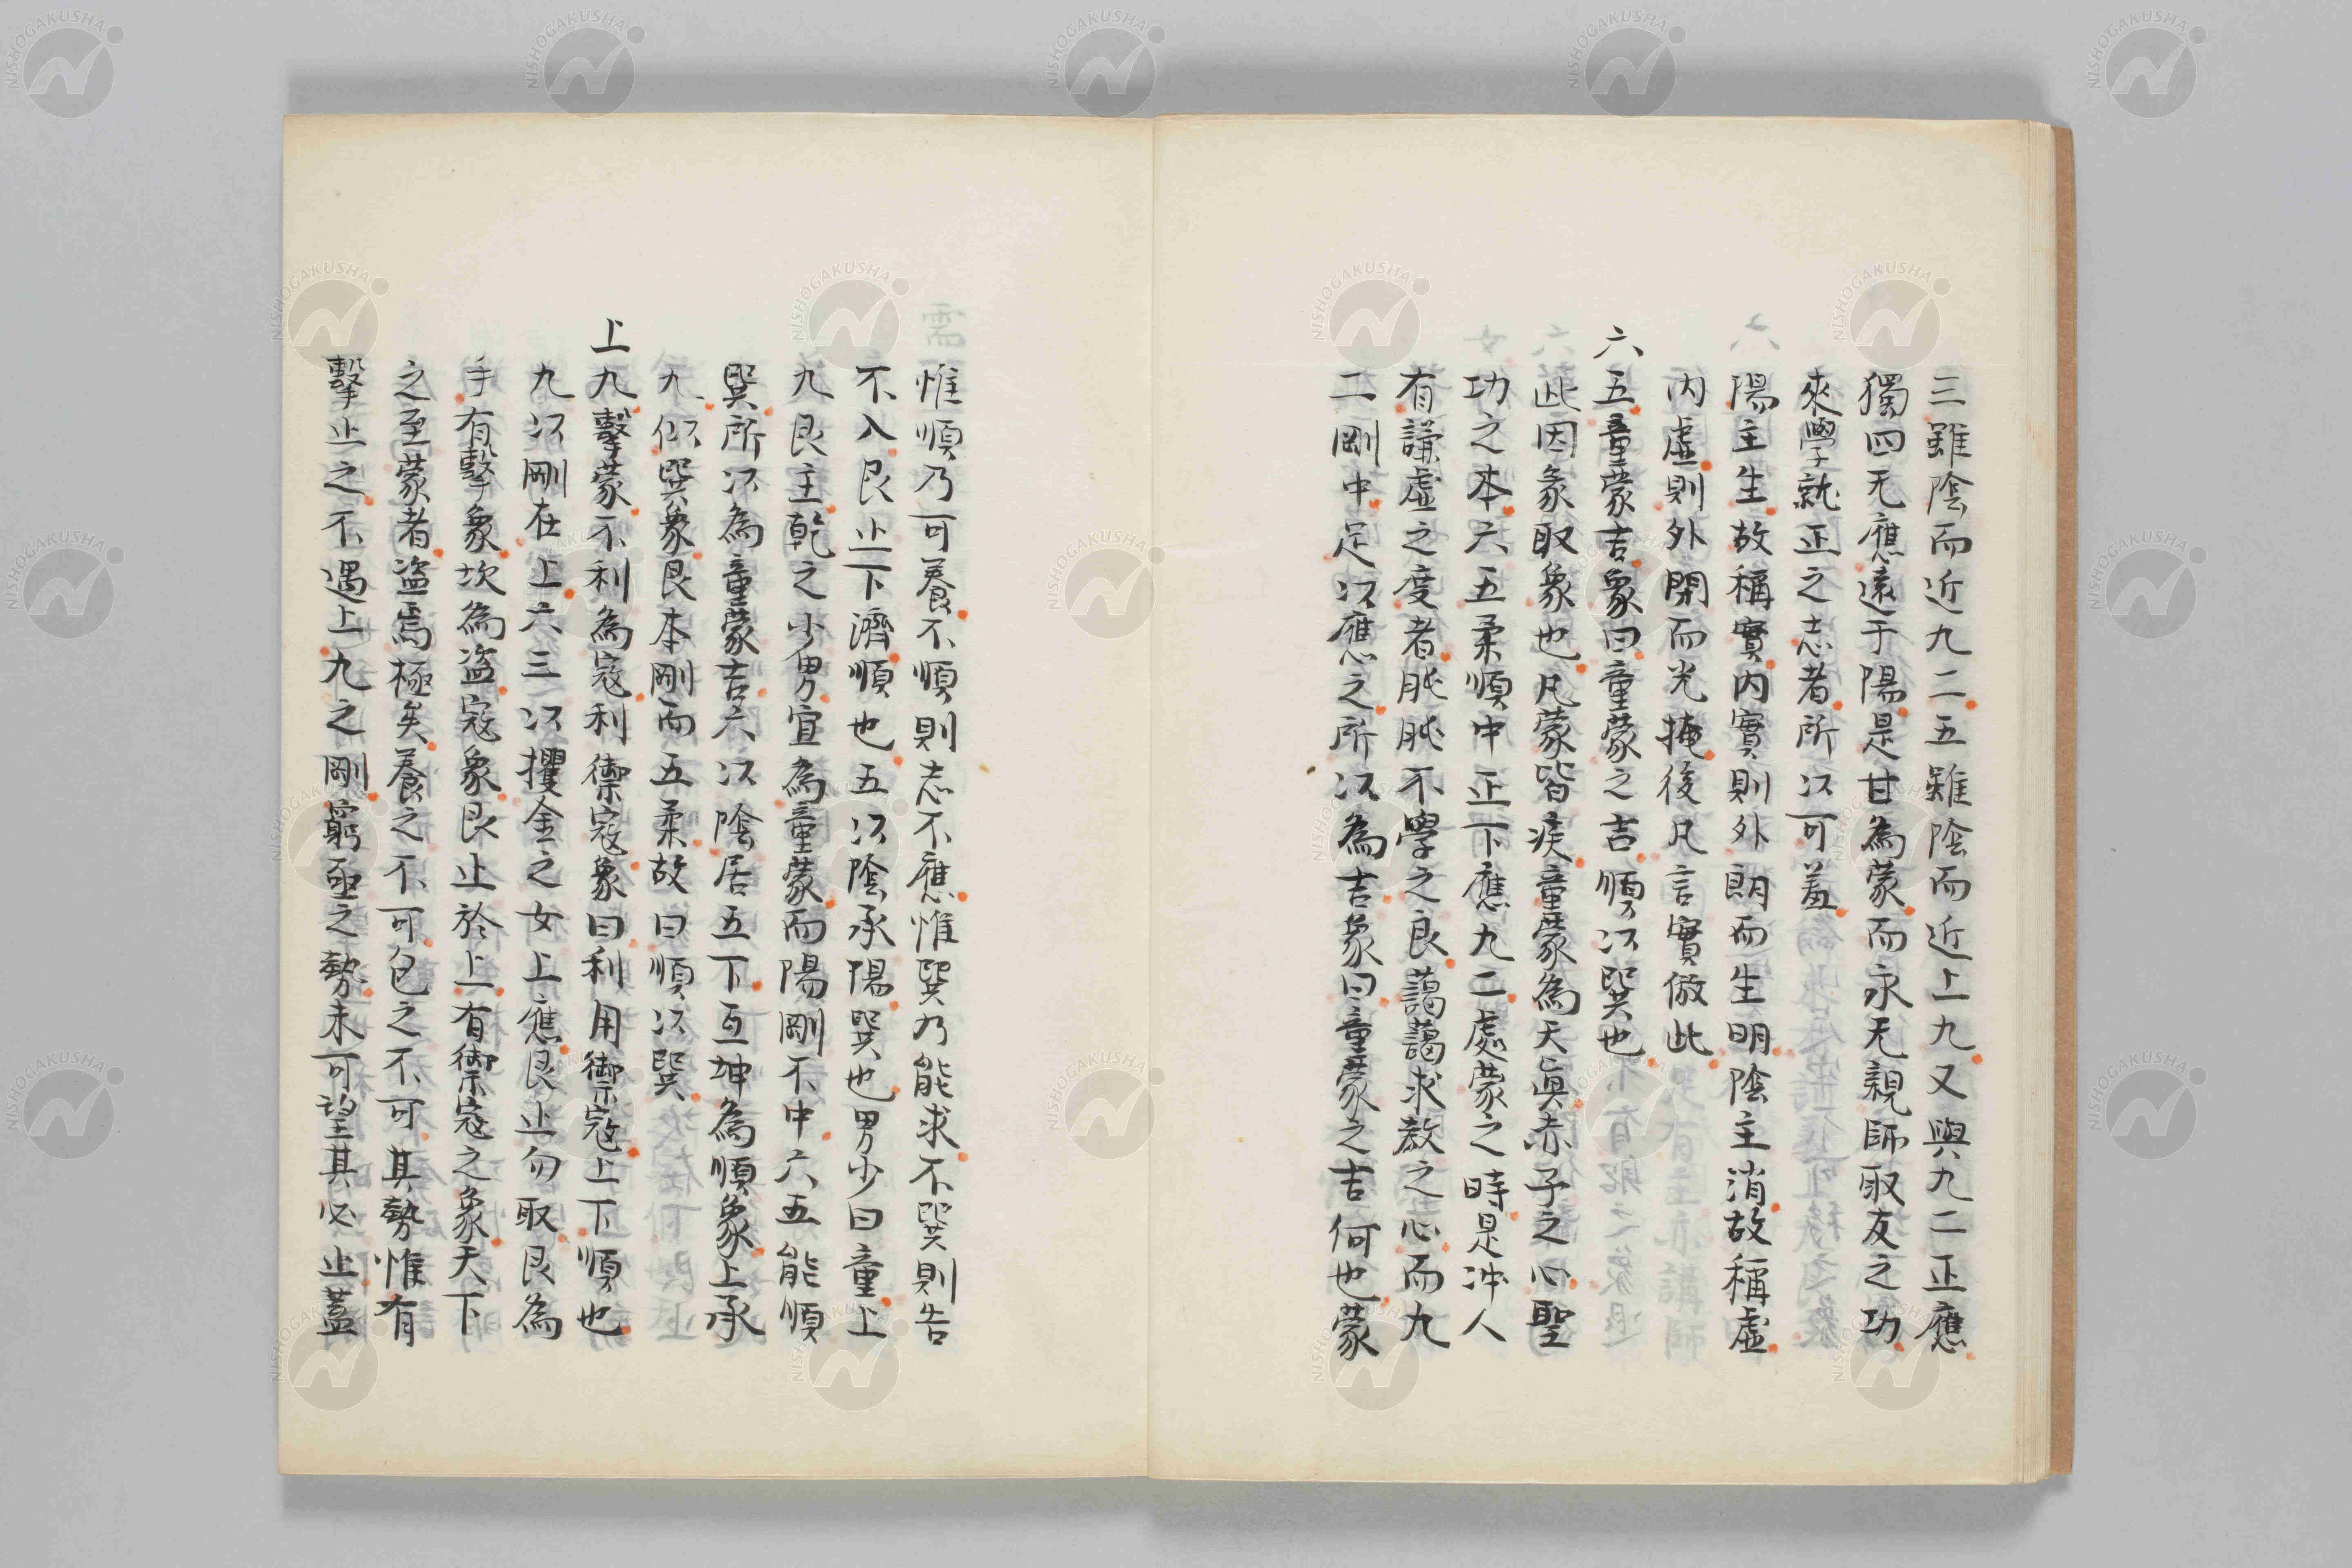 三雖陰而近九二五雖陰而近上九又與九二正應
獨四无應遠于陽是甘為蒙而永无親師取友之功
來學就正之志者所以可羞
陽主生故稱實內實則外朗而生明陰主消故稱虛
內虛則外閉而光掩後凡言實倣此
六五童蒙吉象曰童蒙之吉順以巽也
此因彖取象也凡蒙皆疾童蒙為天眞赤子之心聖
功之本六五柔順中正下應九二處蒙之時是冲人
有謙虛之度者肫肫不學之良藹藹求教之心而九
二剛中足以應之所以為吉象曰童蒙之吉何也蒙
惟順乃可養不順則志不應惟巽乃能求不巽則告
不入艮止下濟順也五以陰承陽巽也男少曰童上
九艮主乾之少男宜為童蒙而陽剛不中六五能順
巽所以為童蒙吉六以陰居五下互坤為順象上承
九似巽象艮本剛而五柔故曰順以巽
上九擊蒙不利為寇利禦寇象曰利用禦寇上下順也
九以剛在上六三以攫金之女上應艮止勿取艮為
手有擊象坎為盜寇象艮止於上有禦寇之象天下
之至蒙者盜焉極矣養之不可包之不可其勢惟有
擊止之不遇上九之剛窮亟之勢未可望其必止蓋
NISHOGAKUSHA